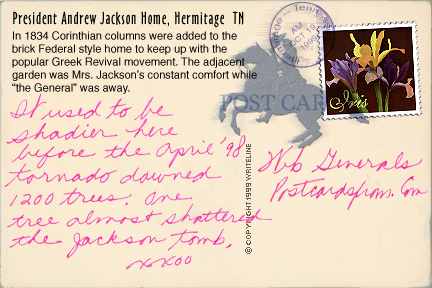 President Andrew Jackson Home, Hermitage TN
In 1834 Corinthian columns were added to the
brick Federal style home to keep up with the
popular Greek Revival movement. The adjacent
garden was Mrs. Jackson's constant comfort while
"the General" was away.
It used to be
shadier here
before the April '98
tornado downed
1200 trees. One
tree almost shattered
the Jackson tomb.
xxoo
POST CARD
© COPYRIGHT 1999 WRITELINE
Iris
Web Generals
Postcardsfrom.Com